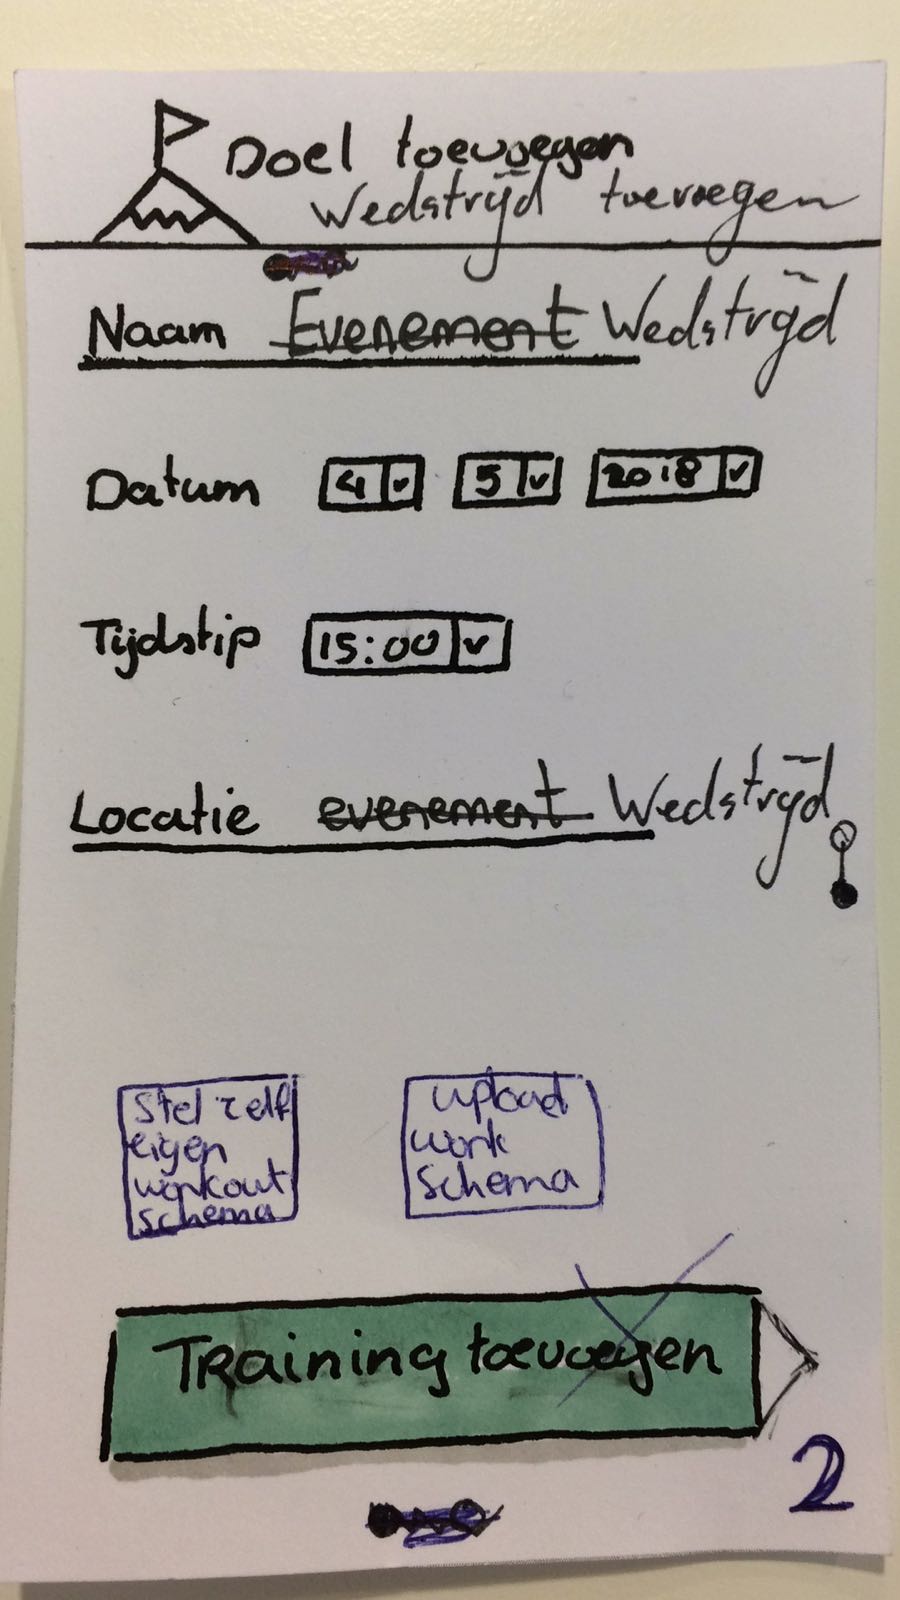 Doel toevoegen
Wedstrijd toevoegen
Naam Evenement Wedstrijd
Datum 4 v 5 v 2018 v
Tijdstip 15:00 v
Locatie evenement Wedstrijd
Stel zelf
eigen
workout
schema
upload
work
Schema
Training toevoegen
2